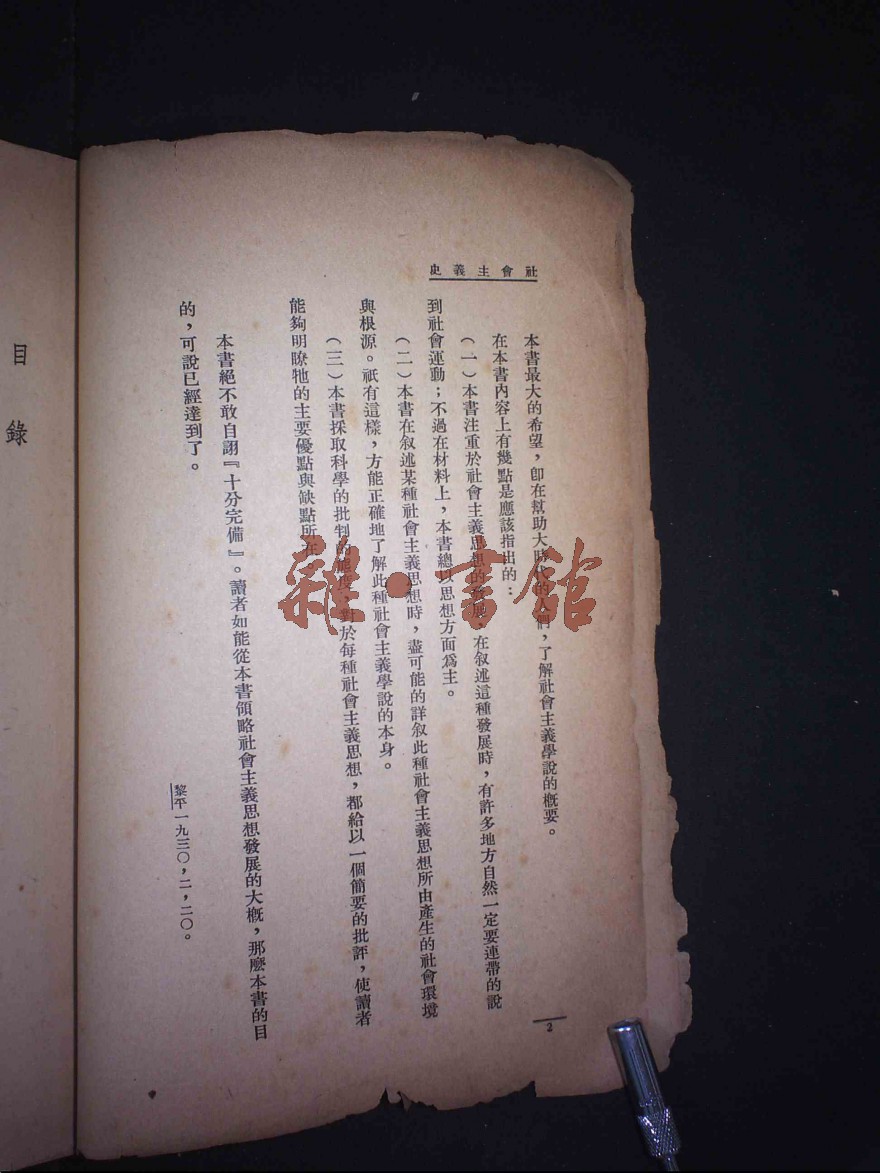 社會主義史
本書最大的希望，卽在幫助大時代的人們，了解社會主義學說的槪要。
在本書內容上有幾點是應該指出的：
（一）本書注重於社會主義思想的發展，在叙述這種發展時，有許多地方自然一定要連帶的說
到社會運動；不過在材料上，本書總以思想方面爲主。
（二）本書在叙述某種社會主義思想時，盡可能的詳叙此種社會主義思想所由產生的社會環境
與根源。祇有這樣，方能正確地了解此種社會主義學說的本身。
（三）本書採取科學的批判的態度，對於每種社會主義思想，都給以一個簡要的批評，使讀者
能夠明瞭牠的主要優點與缺點所在。
本書絕不敢自詡『十分完備』。讀者如能從本書領略社會主義思想發展的大槪，那麽本書的目
的，可說已經達到了。
黎平一九三〇，二，二〇。
2
目錄
雜·書館